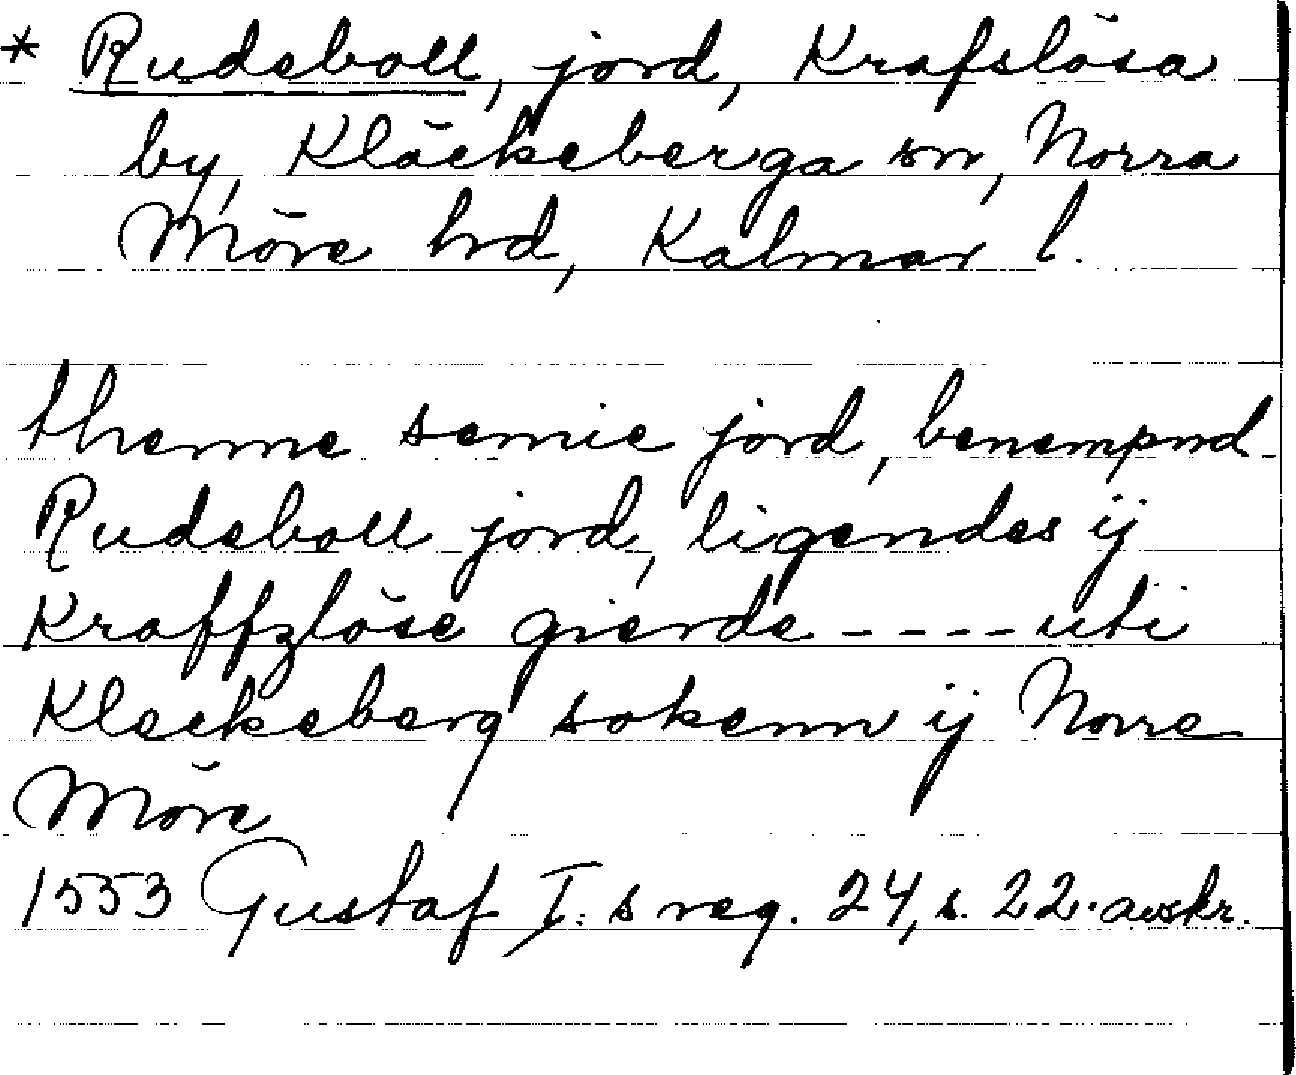 * Rudeboll, jord, Krafslösa
by, Kläckeberga sn, Norra
Möre hd, Kalmar l.
thenne semie jord, benempnd
Rudeboll jord, ligendes ij
Kraffzlöse gierde ---- uti
Kleckeberg sokenn ij Norre
Möre
1553 Gustaf I:s reg. 24, s. 22. avskr.